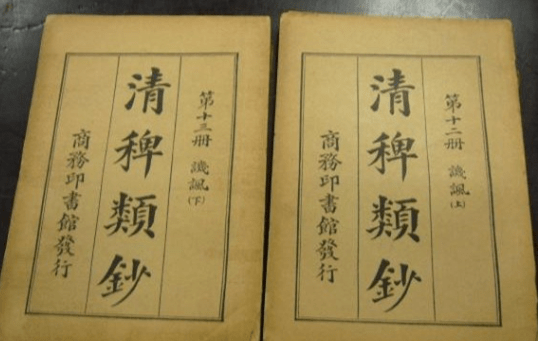 第十三冊 譏諷(下)
清稗類鈔
商務印書館發行
第十二冊 譏諷(上)
清稗類鈔
商務印書館發行